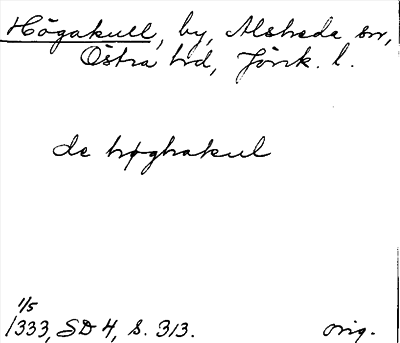 Högakull, by, Alsheda sn,
Östra hd, Jönk. l.
de høghakul
1/5
1333, SD 4, s. 313.
orig.